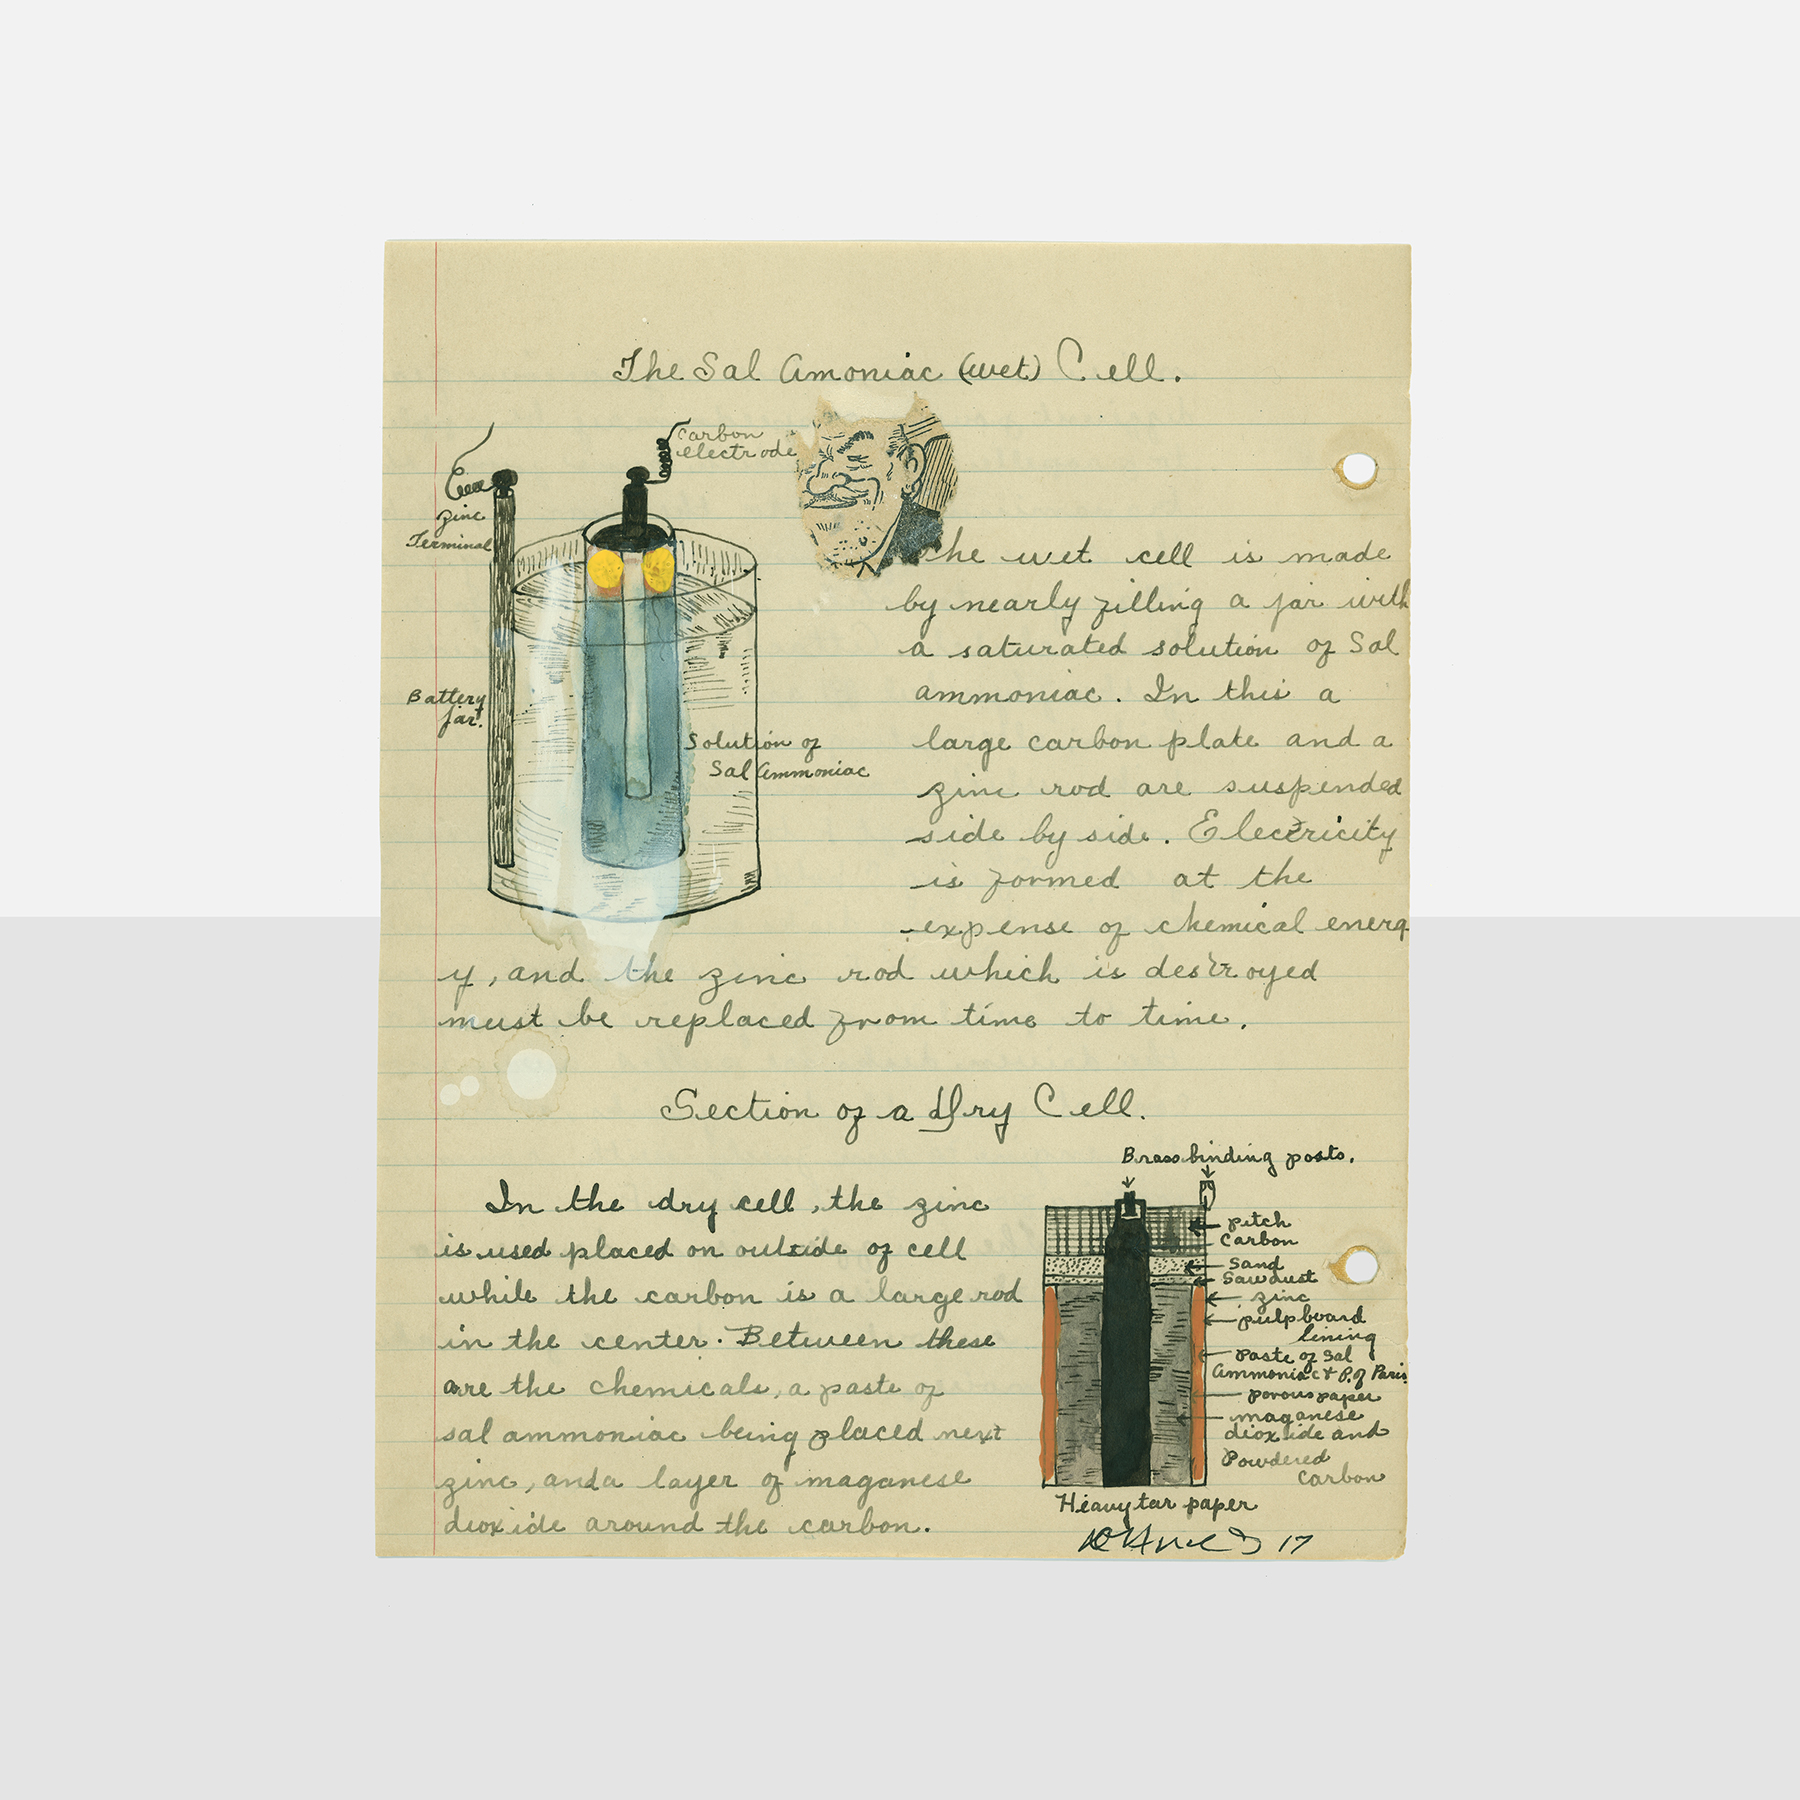 The Sal Amoniac (wet) Cell.
Carbon
electrode
Zinc
Terminal
Battery
Jar.
Solution of
Sal Ammoniac
The wet cell is made
by nearly filling a jar with
a saturated solution of Sal
ammoniac. In this a
large carbon plate and a
zinc rod are suspended
side by side. Electricity
is formed at the
expense of chemical energ
y, and the zinc rod which is destroyed
must be replaced from time to time.
Section of a Dry Cell.
In the dry cell, the zinc
is used placed on outside of cell
while the carbon is a large rod
in the center. Between these
are the chemicals, a paste of
sal ammoniac being placed next
zinc, and a layer of maganese
dioxide around the carbon.
Brass binding posts.
pitch
Carbon
Sand
Sawdust
zinc
pulpboard
lining
paste of Sal
Ammoniac & P. of Paris.
porous paper
maganese
dioxide and
Powdered
Carbon
Heavy tar paper
17